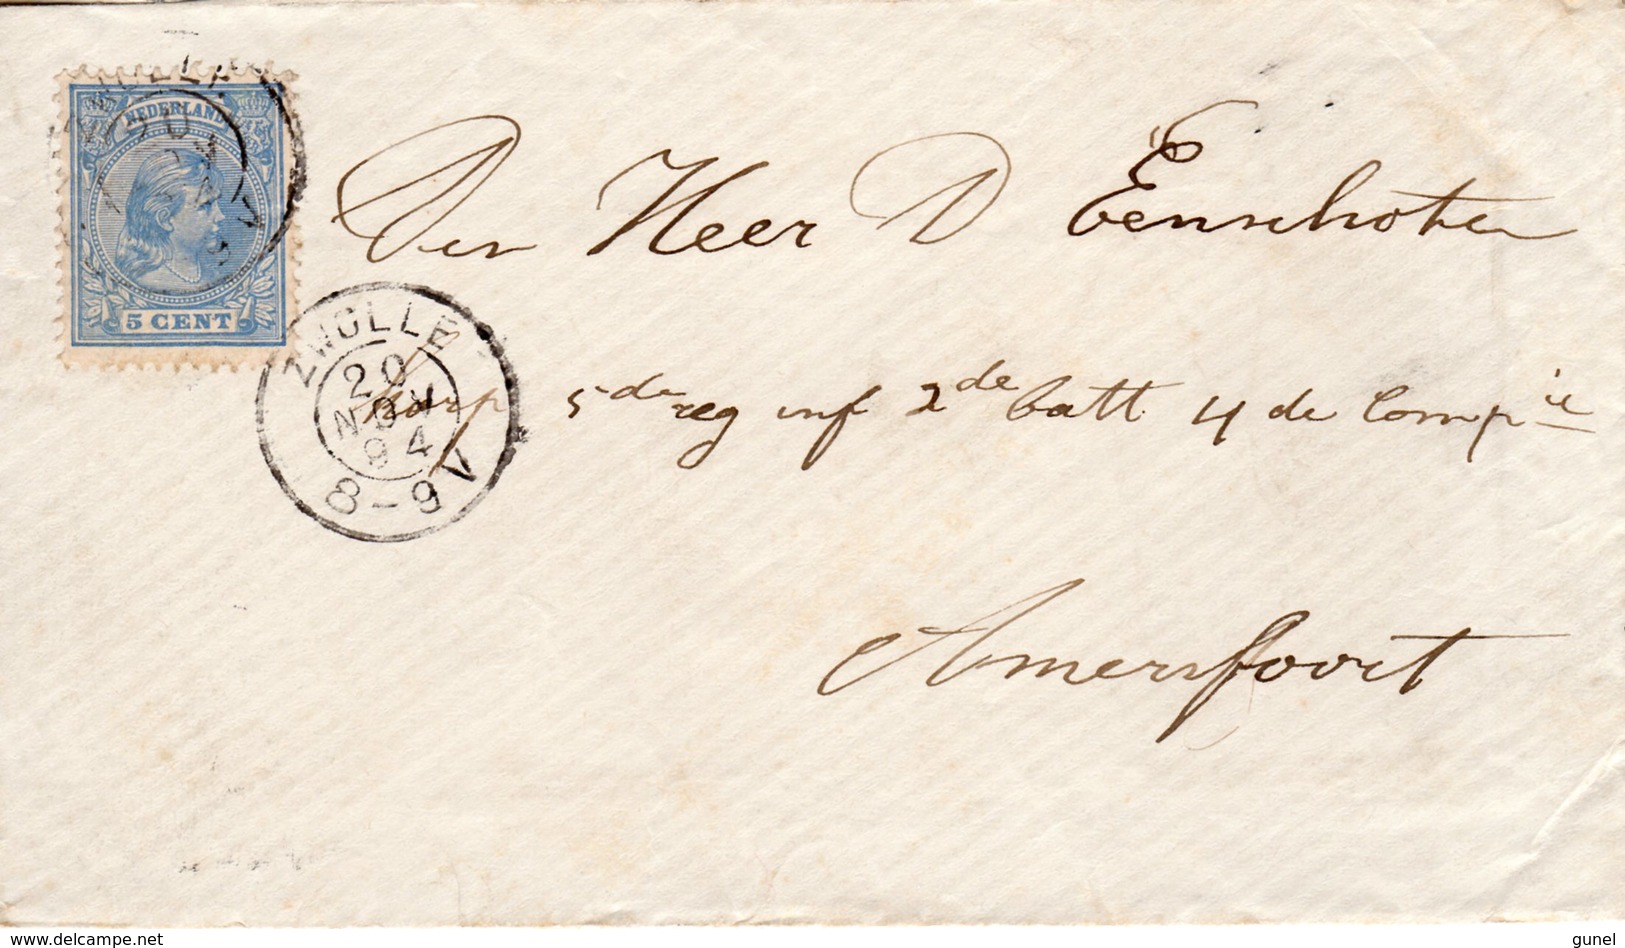 NEDERLAND
5 CENT
Den Heer D Eenschoten
ZWOLLE
20
NOV
94
8-9V
Korp 5de reg inf 2de batt 4 de Compie
Amersfoort
www.delcampe.net
gunel